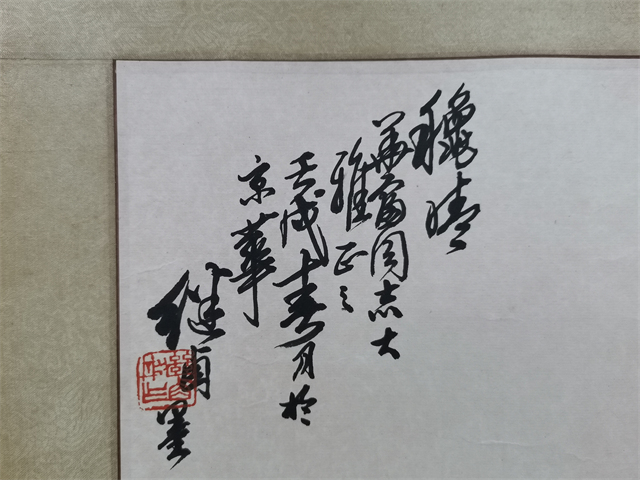 秋晴
華富同志大
雅正之
壬戌春月於
京華
继
墨